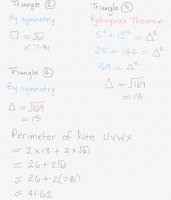 Triangle ②
By symmetry
□ = √61
≈ 7.81
Triangle ③
Pythagoras Theorem:
5² + 12² = △²
25 + 144 = △²
169 = △²
△ = √169
= 13
Triangle ④
By symmetry
△ = √169
= 13
Perimeter of kite UVWX
= 2 × 13 + 2 × √61
= 26 + 2√61
≈ 26 + 2(7.81)
≈ 41.62